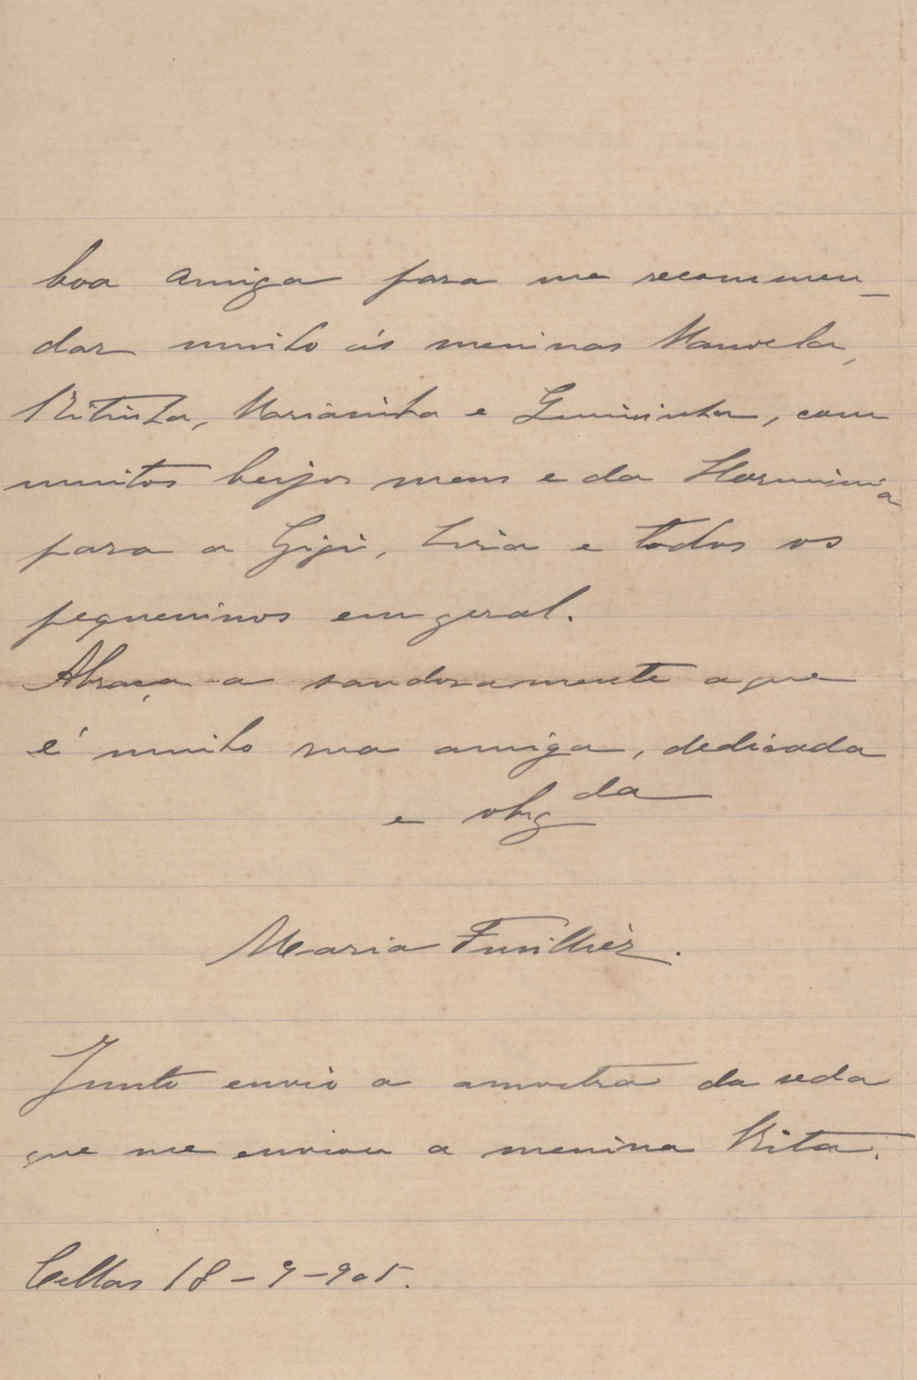 boa amiga para me recommen_
dar muito ás meninas Manoela,
Ritinha, Marianinha e Genininha, com
muitos beijos meus e da Herminia
para a Gigi, Livia e todos os
pequeninos em geral.
Abraça-a saudosamente a que
é muito sua amiga, dedicada
e obrg da
Maria Fusilhièr.
Junto envio a amostra da seda
que me enviou a menina Rita.
Cellas 18-9-905.